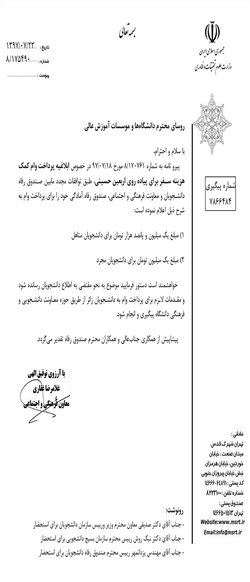 بسمه تعالی
جمهوری اسلامی ایران
وزارت علوم، تحقیقات و فناوری
تاریخ: ۱۳۹۷/۰۷/۲۳
شماره: ۸/۱۷۵۴۹۰
پیوست:
روسای محترم دانشگاه‌ها و موسسات آموزش عالی
با سلام و احترام،
پیرو نامه به شماره ۸/۱۷۰۷۶۱ مورخ ۹۷/۰۷/۱۸ در خصوص ابلاغیه پرداخت وام کمک
هزینه سفر برای پیاده روی اربعین حسینی، طبق توافقات مجدد مابین صندوق رفاه
دانشجویان و معاونت فرهنگی و اجتماعی، صندوق رفاه آمادگی خود را برای پرداخت وام به
شرح ذیل اعلام نموده است:
۱) مبلغ یک میلیون و پانصد هزار تومان برای دانشجویان متاهل
۲) مبلغ یک میلیون تومان برای دانشجویان مجرد
خواهشمند است دستور فرمایید موضوع به نحو مقتضی به اطلاع دانشجویان رسانده شود
و مقدمات لازم برای پرداخت وام به دانشجویان زائر از طریق حوزه معاونت دانشجویی و
فرهنگی دانشگاه پیگیری و انجام شود.
پیشاپیش از همکاری جنابعالی و همکاران محترم صندوق رفاه تقدیر می‌گردد.
شماره پیگیری
۷۸۶۶۴۸۴
با آرزوی توفیق الهی
غلامرضا غفاری
معاون فرهنگی و اجتماعی
رونوشت:
- جناب آقای دکتر صدیقی معاون محترم وزیر و رییس سازمان دانشجویان برای استحضار
- جناب آقای دکتر نیک روش رییس محترم سازمان بسیج دانشجویی برای استحضار
- جناب آقای مهندس یزدانمهر رییس محترم صندوق رفاه دانشجویان برای استحضار
نشانی:
تهران، شهرک قدس،
میدان صنعت، خیابان
خوردین، خیابان هرمزان
نبش خیابان پیروزان جنوبی
کد پستی:
شماره تلفن:
صندوق پستی:
تهران
Website:www.msrt.ir
Email:info@msrt.ir